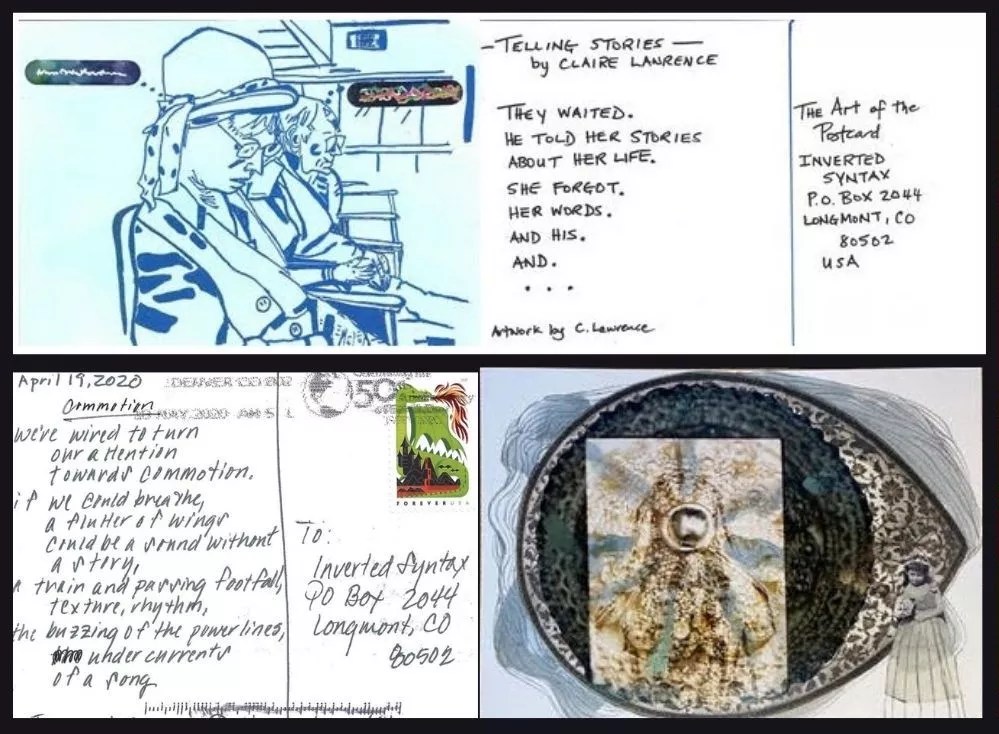 — TELLING STORIES —
by CLAIRE LAWRENCE
THEY WAITED.
HE TOLD HER STORIES
ABOUT HER LIFE.
SHE FORGOT.
HER WORDS.
AND HIS.
AND.
. . .
Artwork by C. Lawrence
The Art of the
Postcard
INVERTED
SYNTAX
P.O. BOX 2044
LONGMONT, CO
80502
USA
April 19, 2020
Commotion
we're wired to turn
our attention
towards commotion.
if we could breathe,
a flutter of wings
could be a sound without
a story,
a train and passing footfall,
texture, rhythm,
the buzzing of the powerlines,
under currents
of a song
DENVER CO
MAY 2020 AM 5 L
50
FOREVER USA
To:
Inverted Syntax
PO Box 2044
Longmont, CO
80502